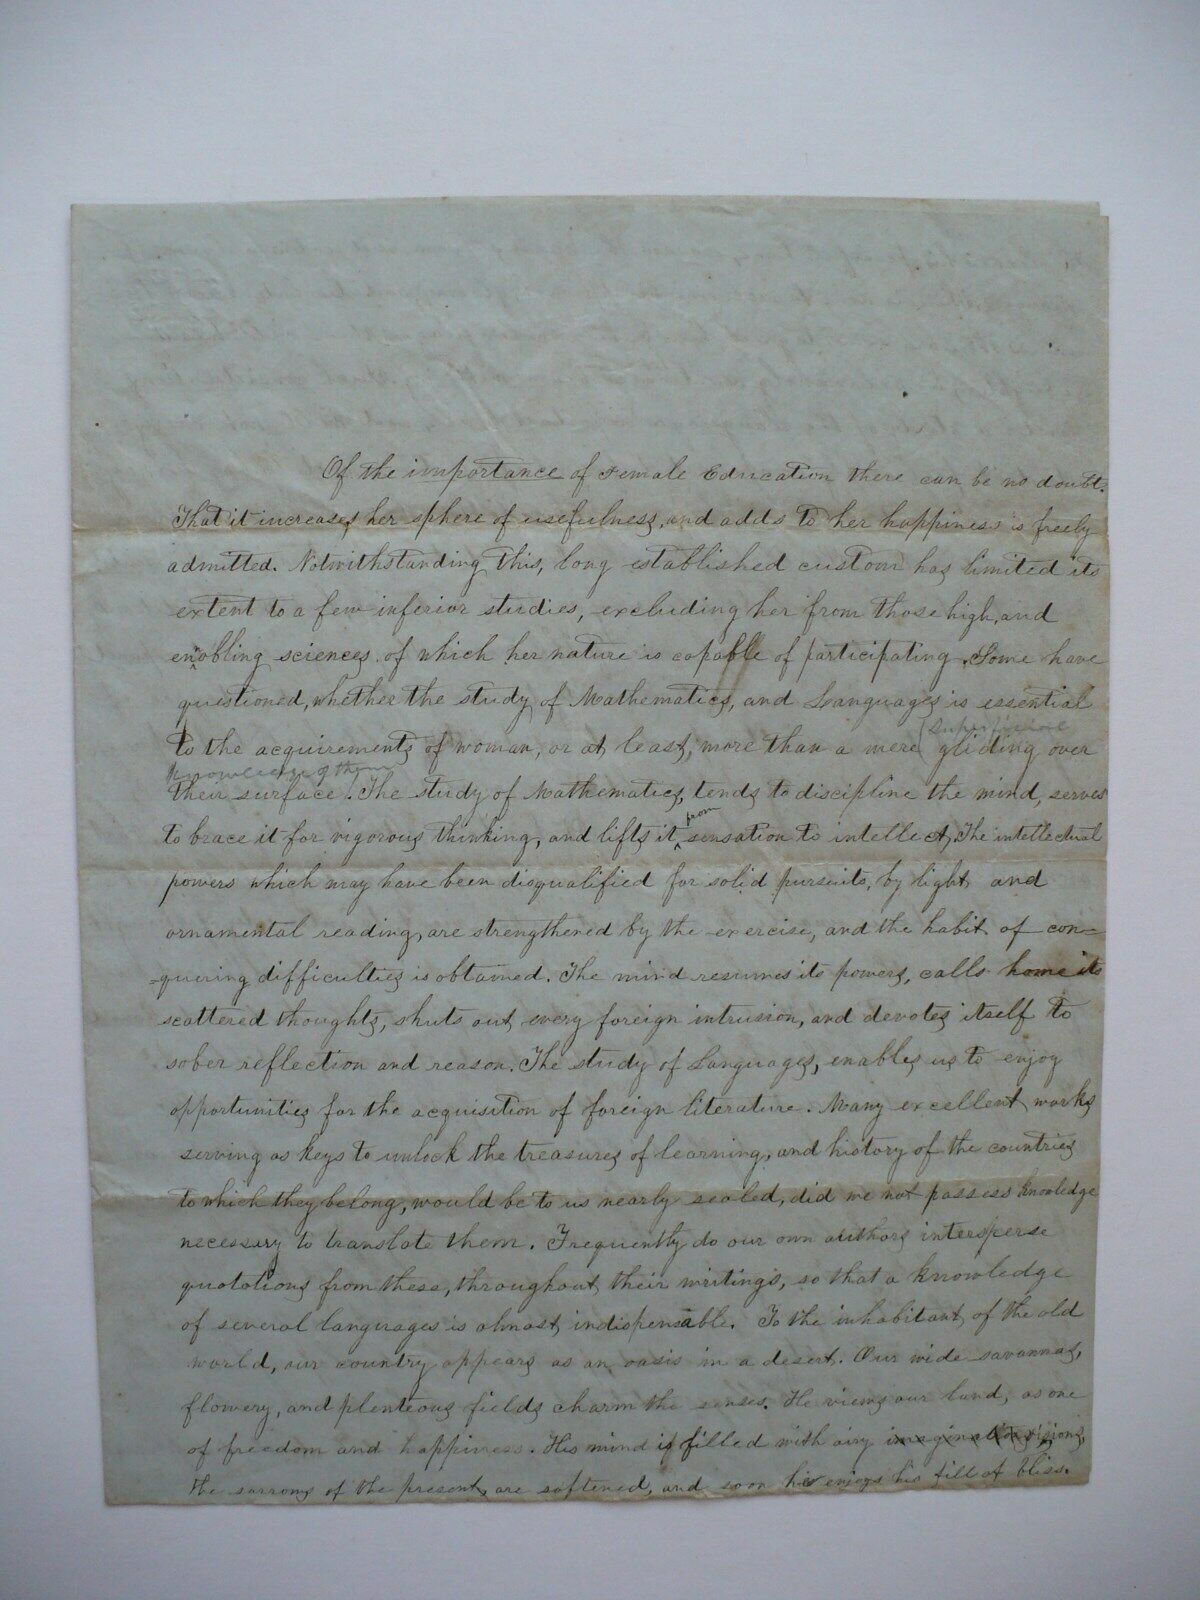 Of the importance of Female Education there can be no doubt.
That it increases her sphere of usefulness, and adds to her happiness is freely
admitted. Notwithstanding this, long established custom has limited its
extent to a few inferior studies, excluding her from those high, and
ennobling sciences of which her nature is capable of participating. Some have
questioned, whether the study of Mathematics, and Languages is essential
superficial
to the acquirements of woman, or at least, more than a mere (gliding over
knowledge of them
their surface. The study of Mathematics, tends to discipline the mind, serves
from
to brace it for vigorous thinking, and lifts it ‸ sensation to intellect. The intellectual
powers which may have been disqualified for solid pursuits, by light and
ornamental reading, are strengthened by the exercise, and the habit of con=
=quering difficulties is obtained. The mind resumes its powers, calls home its
scattered thoughts, shuts out every foreign intrusion, and devotes itself to
sober reflection and reason. The study of Languages, enables us to enjoy
opportunities for the acquisition of foreign literature. Many excellent works
serving as keys to unlock the treasures of learning, and history of the countries
to which they belong, would be to us nearly sealed, did we not possess knowledge
necessary to translate them. Frequently do our own authors intersperse
quotations from these, throughout their writings, so that a knowledge
of several languages is almost indispensable. To the inhabitant of the old
world, our country appears as an oasis in a desert. Our wide savannas,
flowery, and plenteous fields charm the senses. He views our land, as one
of freedom and happiness. His mind is filled with airy visions,
the sorrows of the present, are softened, and soon he enjoys his fill of bliss.